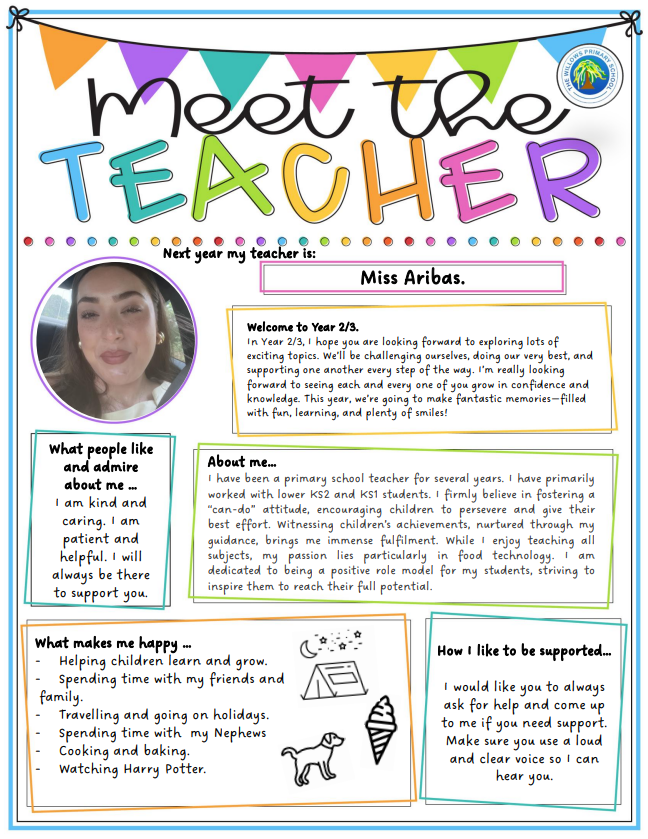 THE WILLOWS PRIMARY SCHOOL
Meet the
TEACHER
Next year my teacher is:
Miss Aribas.
Welcome to Year 2/3.
In Year 2/3, I hope you are looking forward to exploring lots of
exciting topics. We'll be challenging ourselves, doing our very best, and
supporting one another every step of the way. I'm really looking
forward to seeing each and every one of you grow in confidence and
knowledge. This year, we're going to make fantastic memories—filled
with fun, learning, and plenty of smiles!
What people like
and admire
about me ...
I am kind and
caring. I am
patient and
helpful. I will
always be there
to support you.
About me...
I have been a primary school teacher for several years. I have primarily
worked with lower KS2 and KS1 students. I firmly believe in fostering a
"can-do" attitude, encouraging children to persevere and give their
best effort. Witnessing children's achievements, nurtured through my
guidance, brings me immense fulfilment. While I enjoy teaching all
subjects, my passion lies particularly in food technology. I am
dedicated to being a positive role model for my students, striving to
inspire them to reach their full potential.
What makes me happy ...
- Helping children learn and grow.
- Spending time with my friends and
family.
- Travelling and going on holidays.
- Spending time with my Nephews
- Cooking and baking.
- Watching Harry Potter.
How I like to be supported...
I would like you to always
ask for help and come up
to me if you need support.
Make sure you use a loud
and clear voice so I can
hear you.